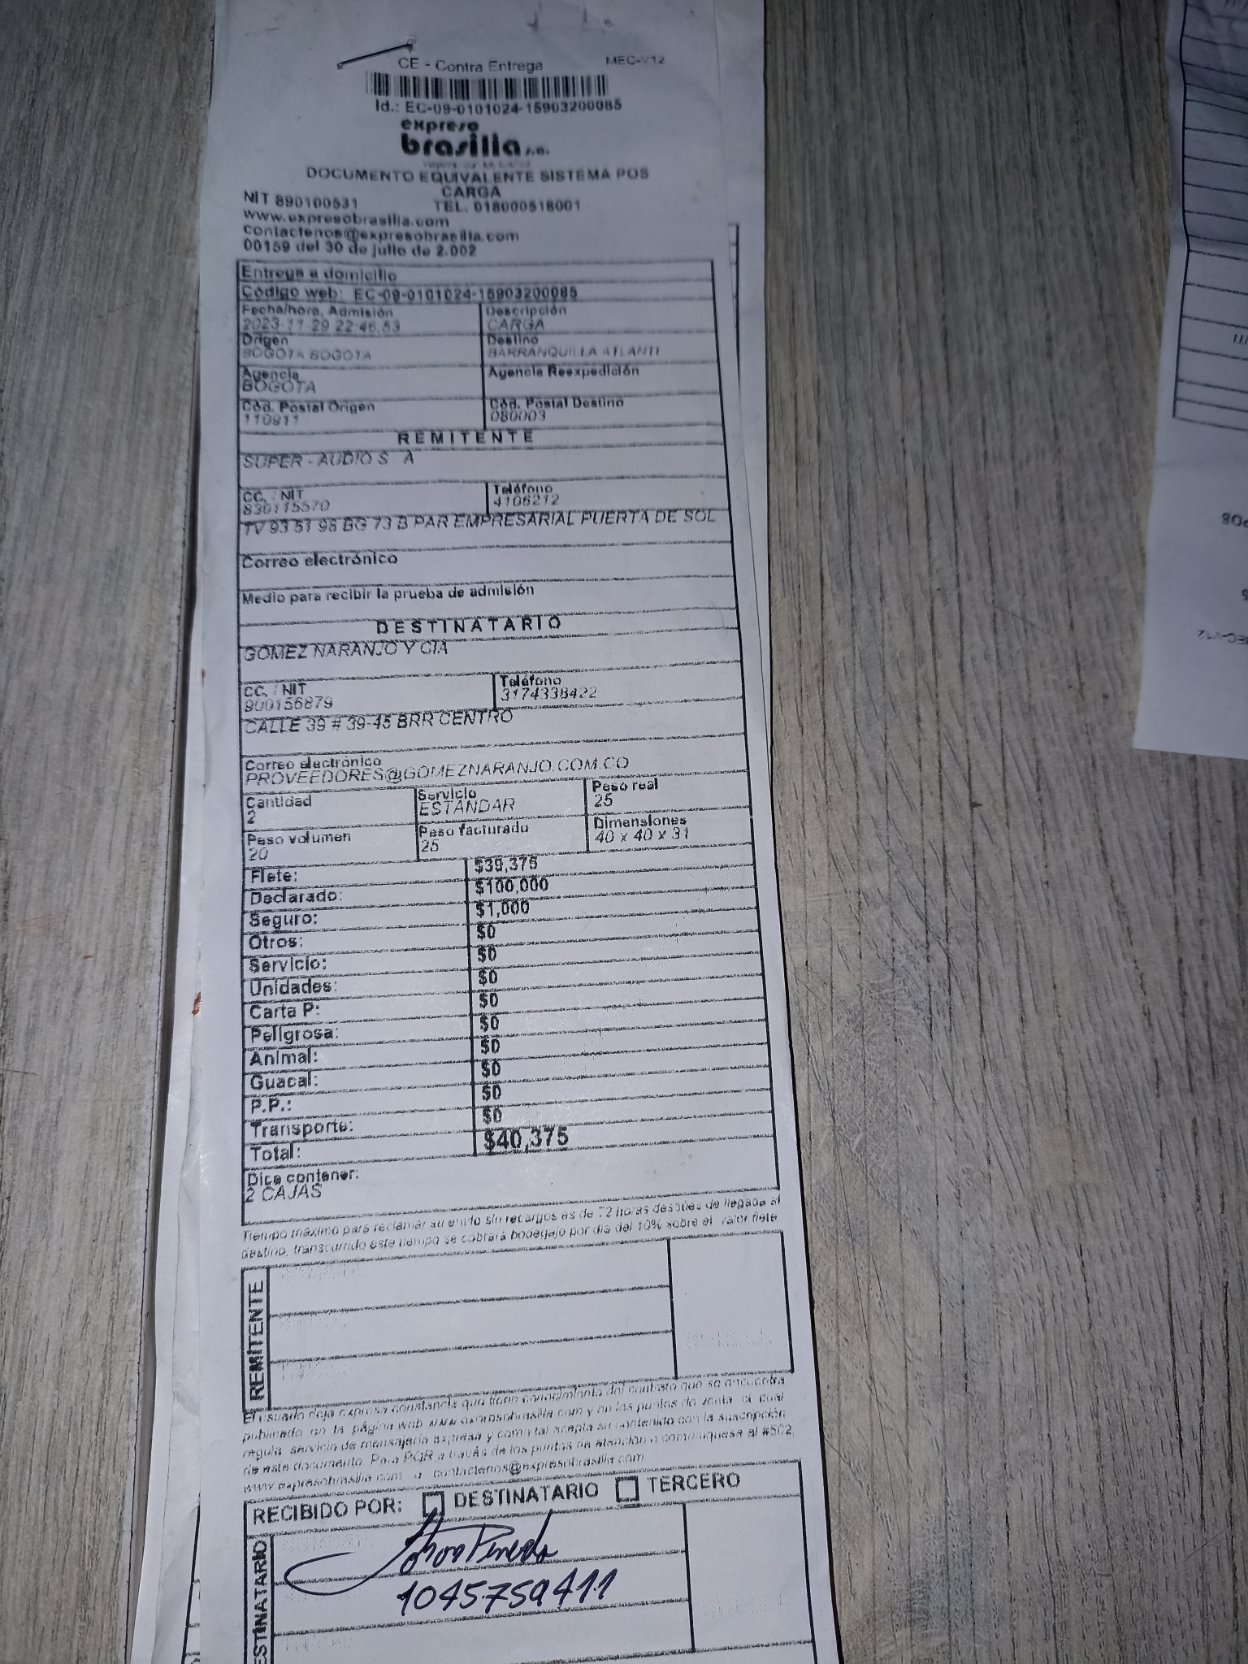 CE - Contra Entrega MEC-V12
Id.: EC-09-0101024-15903200085
expreso
brasilia s.a.
DOCUMENTO EQUIVALENTE SISTEMA POS
CARGA
NIT 890100531 TEL. 018000518001
www.expresobrasilia.com
contactenos@expresobrasilia.com
00159 del 30 de julio de 2.002
Entrega a domicilio
Código web: EC-09-0101024-15903200085
Fecha/hora, Admisión Descripción
2023-11-29 22:46:53 CARGA
Origen Destino
BOGOTA BOGOTA BARRANQUILLA ATLANTI
Agencia Agencia Reexpedición
BOGOTA
Cód. Postal Origen Cód. Postal Destino
110911 080003
REMITENTE
SUPER - AUDIO S A
CC. / NIT Teléfono
830115570 4106212
TV 93 51 98 BG 73 B PAR EMPRESARIAL PUERTA DE SOL
Correo electrónico
Medio para recibir la prueba de admisión
DESTINATARIO
GOMEZ NARANJO Y CIA
CC. / NIT Teléfono
900156879 3174338422
CALLE 39 # 39-45 BRR CENTRO
Correo electrónico
PROVEEDORES@GOMEZNARANJO.COM.CO
Cantidad Servicio Peso real
2 ESTANDAR 25
Peso volumen Peso facturado Dimensiones
20 25 40 x 40 x 31
Flete: $39,375
Declarado: $100,000
Seguro: $1,000
Otros: $0
Servicio: $0
Unidades: $0
Carta P: $0
Peligrosa: $0
Animal: $0
Guacal: $0
P.P.: $0
Transporte: $0
Total: $40,375
Dice contener:
2 CAJAS
Tiempo máximo para reclamar su envío sin recargos es de 72 horas después de llegada al
destino, transcurrido este tiempo se cobrará bodegaje por día del 10% sobre el valor flete
REMITENTE
El usuario deja expresa constancia que tiene conocimiento del contrato que se encuentra
publicado en la página web www.expresobrasilia.com y en los puntos de venta, el cual
regula servicio de mensajería expresa y como tal acepta su contenido con la suscripción
de este documento. Para PQR a través de los puntos de atención o comuníquese al #502,
www.expresobrasilia.com o contactenos@expresobrasilia.com
RECIBIDO POR: DESTINATARIO TERCERO
ESTINATARIO
1045759411